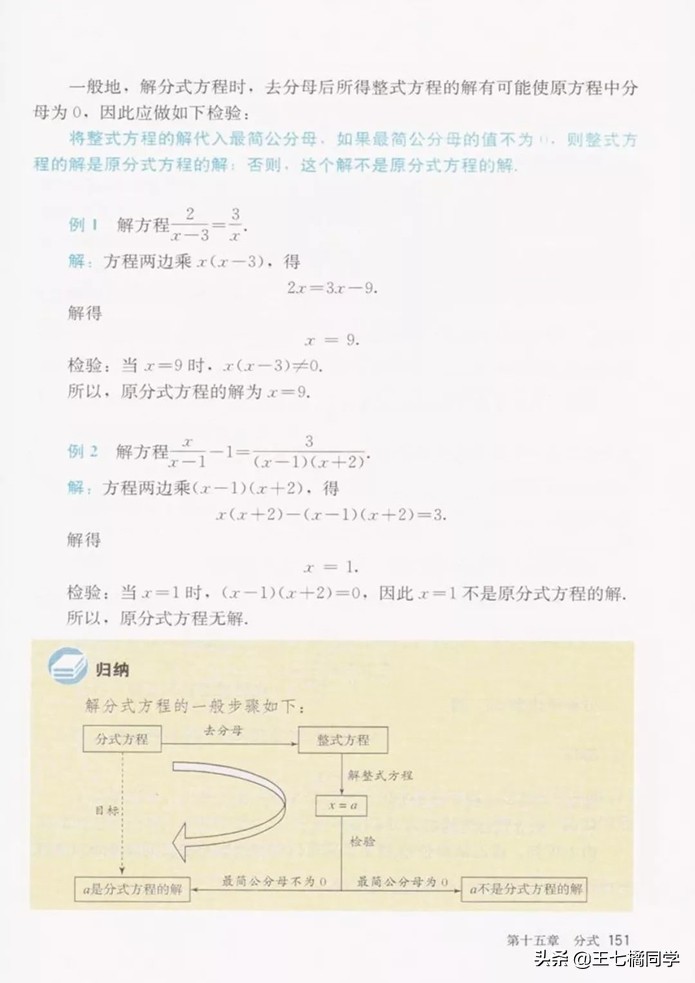 一般地，解分式方程时，去分母后所得整式方程的解有可能使原方程中分
母为0，因此应做如下检验：
将整式方程的解代入最简公分母，如果最简公分母的值不为0，则整式方
程的解是原分式方程的解；否则，这个解不是原分式方程的解.
例1 解方程2/(x-3)=3/x.
解：方程两边乘x(x-3)，得
2x=3x-9.
解得
x = 9.
检验：当x=9时，x(x-3)≠0.
所以，原分式方程的解为x=9.
例2 解方程x/(x-1)-1=3/((x-1)(x+2)).
解：方程两边乘(x-1)(x+2)，得
x(x+2)-(x-1)(x+2)=3.
解得
x = 1.
检验：当x=1时，(x-1)(x+2)=0，因此x=1不是原分式方程的解.
所以，原分式方程无解.
归纳
解分式方程的一般步骤如下：
分式方程 去分母 整式方程
解整式方程
目标 x=a
检验
a是分式方程的解 最简公分母不为0 最简公分母为0 a不是分式方程的解
第十五章 分式 151
头条 @王七橘同学